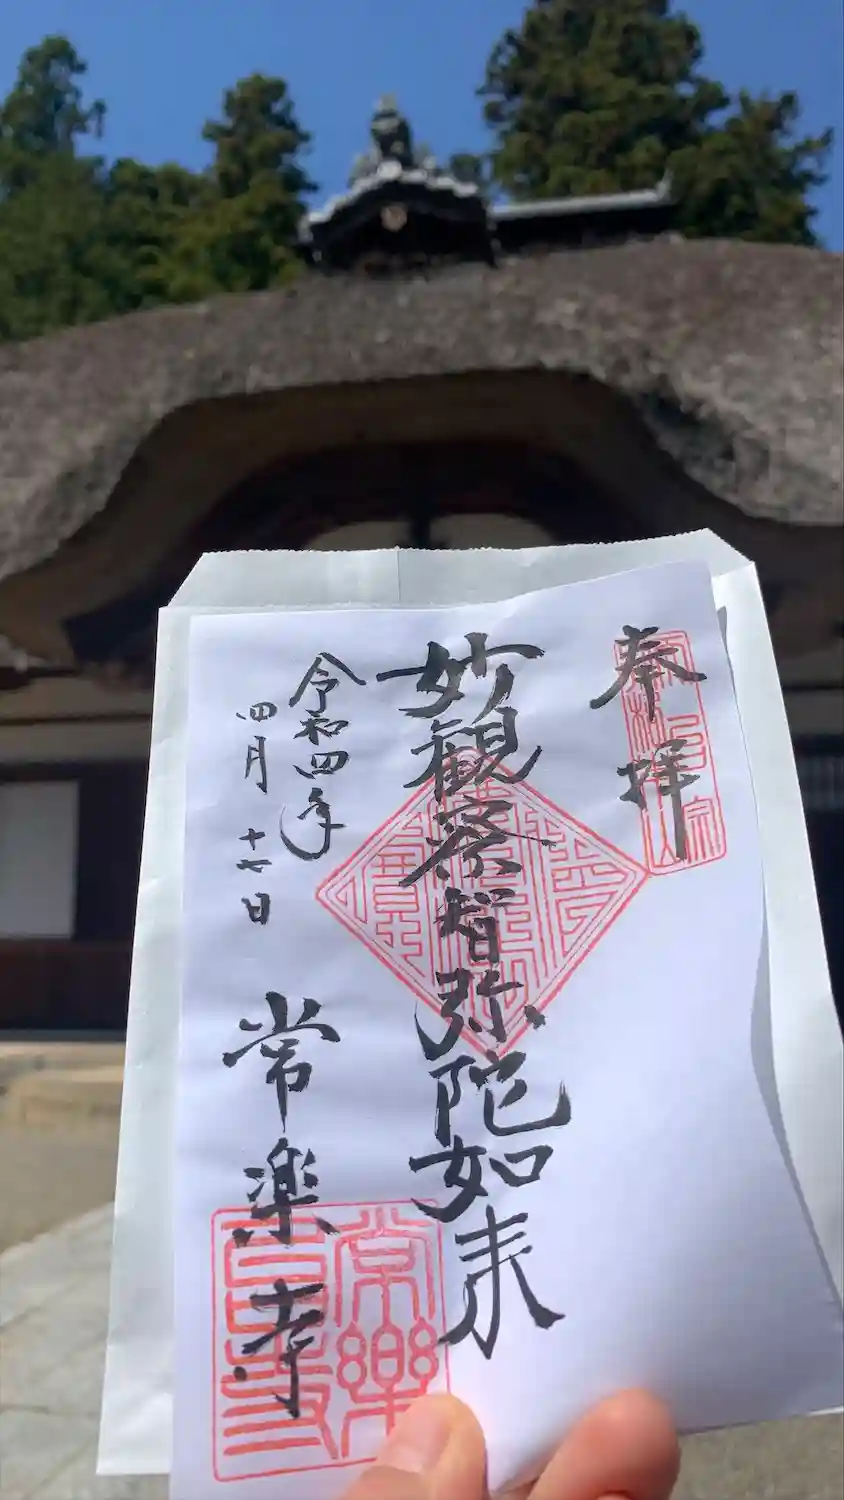 奉拝
妙観察智弥陀如来
令和四年
四月十七日
常楽寺